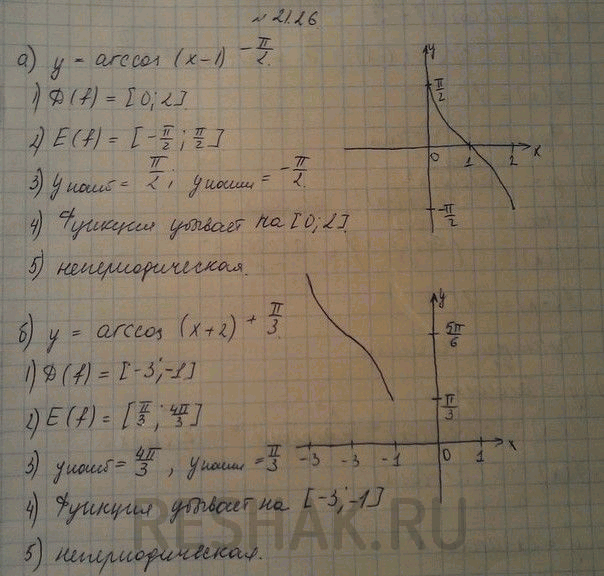 № 21.26
а) y = arccos (x-1) - π/2.
1) D(f) = [0; 2].
2) E(f) = [-π/2; π/2]
3) yнаиб = π/2; yнаим = -π/2.
4) Функция убывает на [0; 2].
5) непериодическая.
y
π/2
0 1 2 x
-π/2
б) y = arccos (x+2) + π/3.
1) D(f) = [-3; -1]
2) E(f) = [π/3; 4π/3]
3) yнаиб = 4π/3, yнаим = π/3
4) Функция убывает на [-3; -1]
5) непериодическая.
y
5π/6
π/3
-3 -3 -1 0 1 x
RESHAK.RU